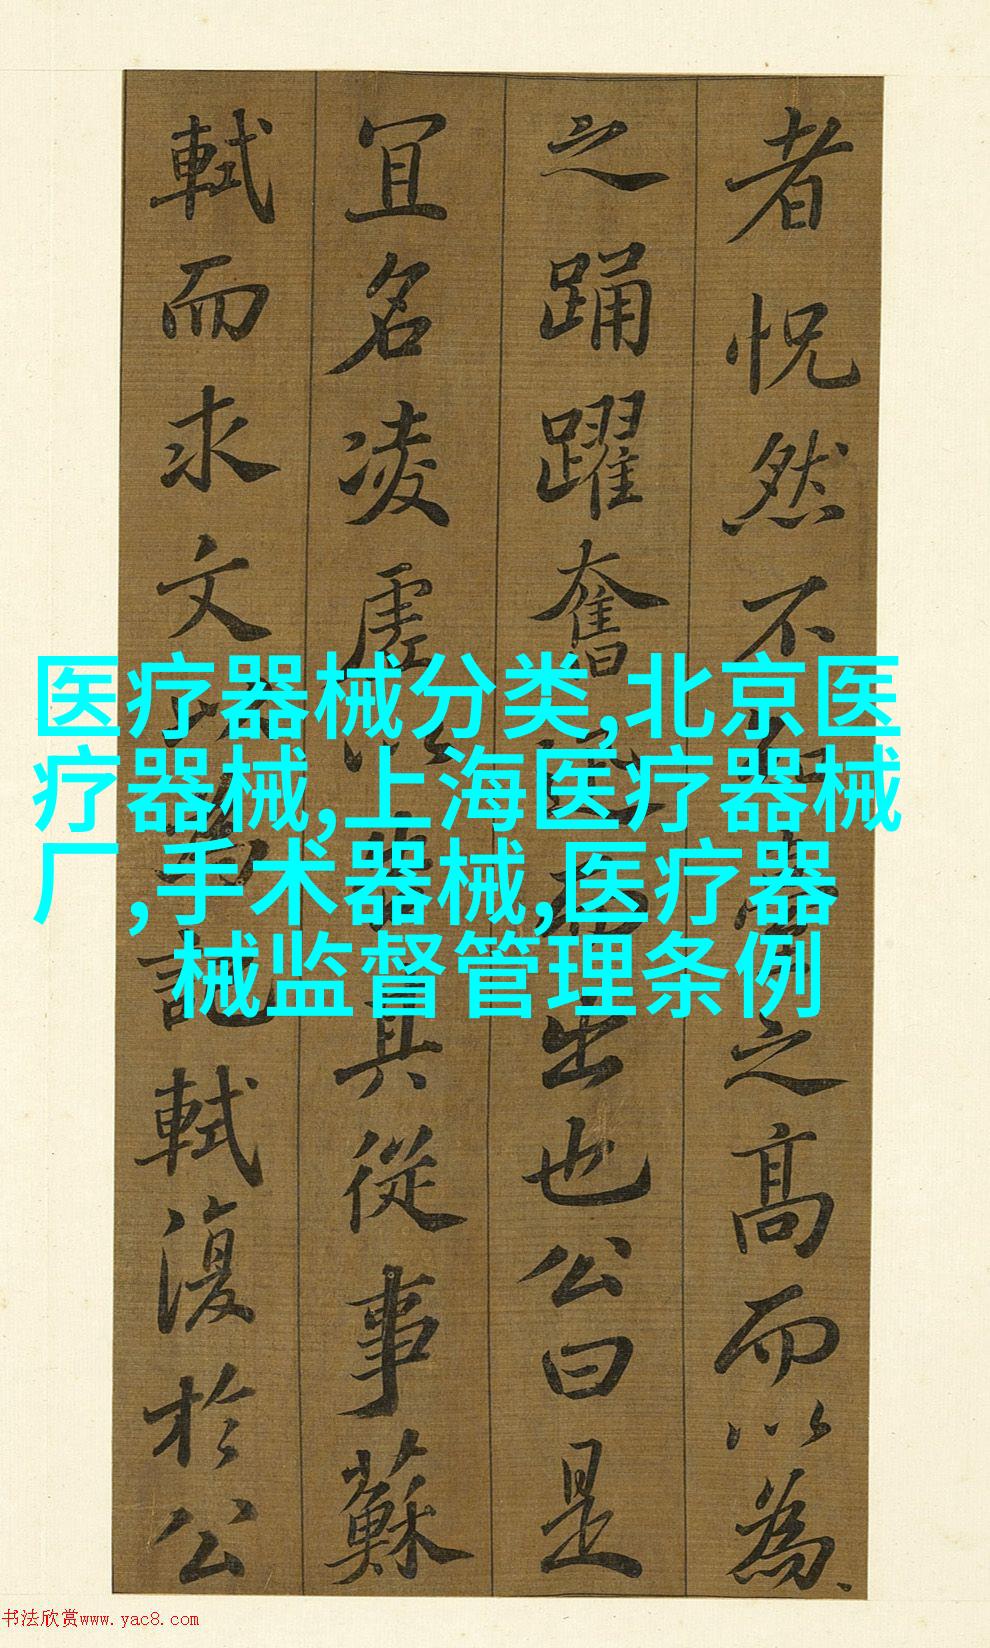 者怳然不知臺之髙而以為
之踊躍奮迅而出也公曰是
冝名凌虛以告其從事蘇
軾而求文以為記軾復於公
医疗器械分类,北京医
疗器械,上海医疗器械
厂,手术器械,医疗器
械监督管理条例
书法欣赏www.yac8.com